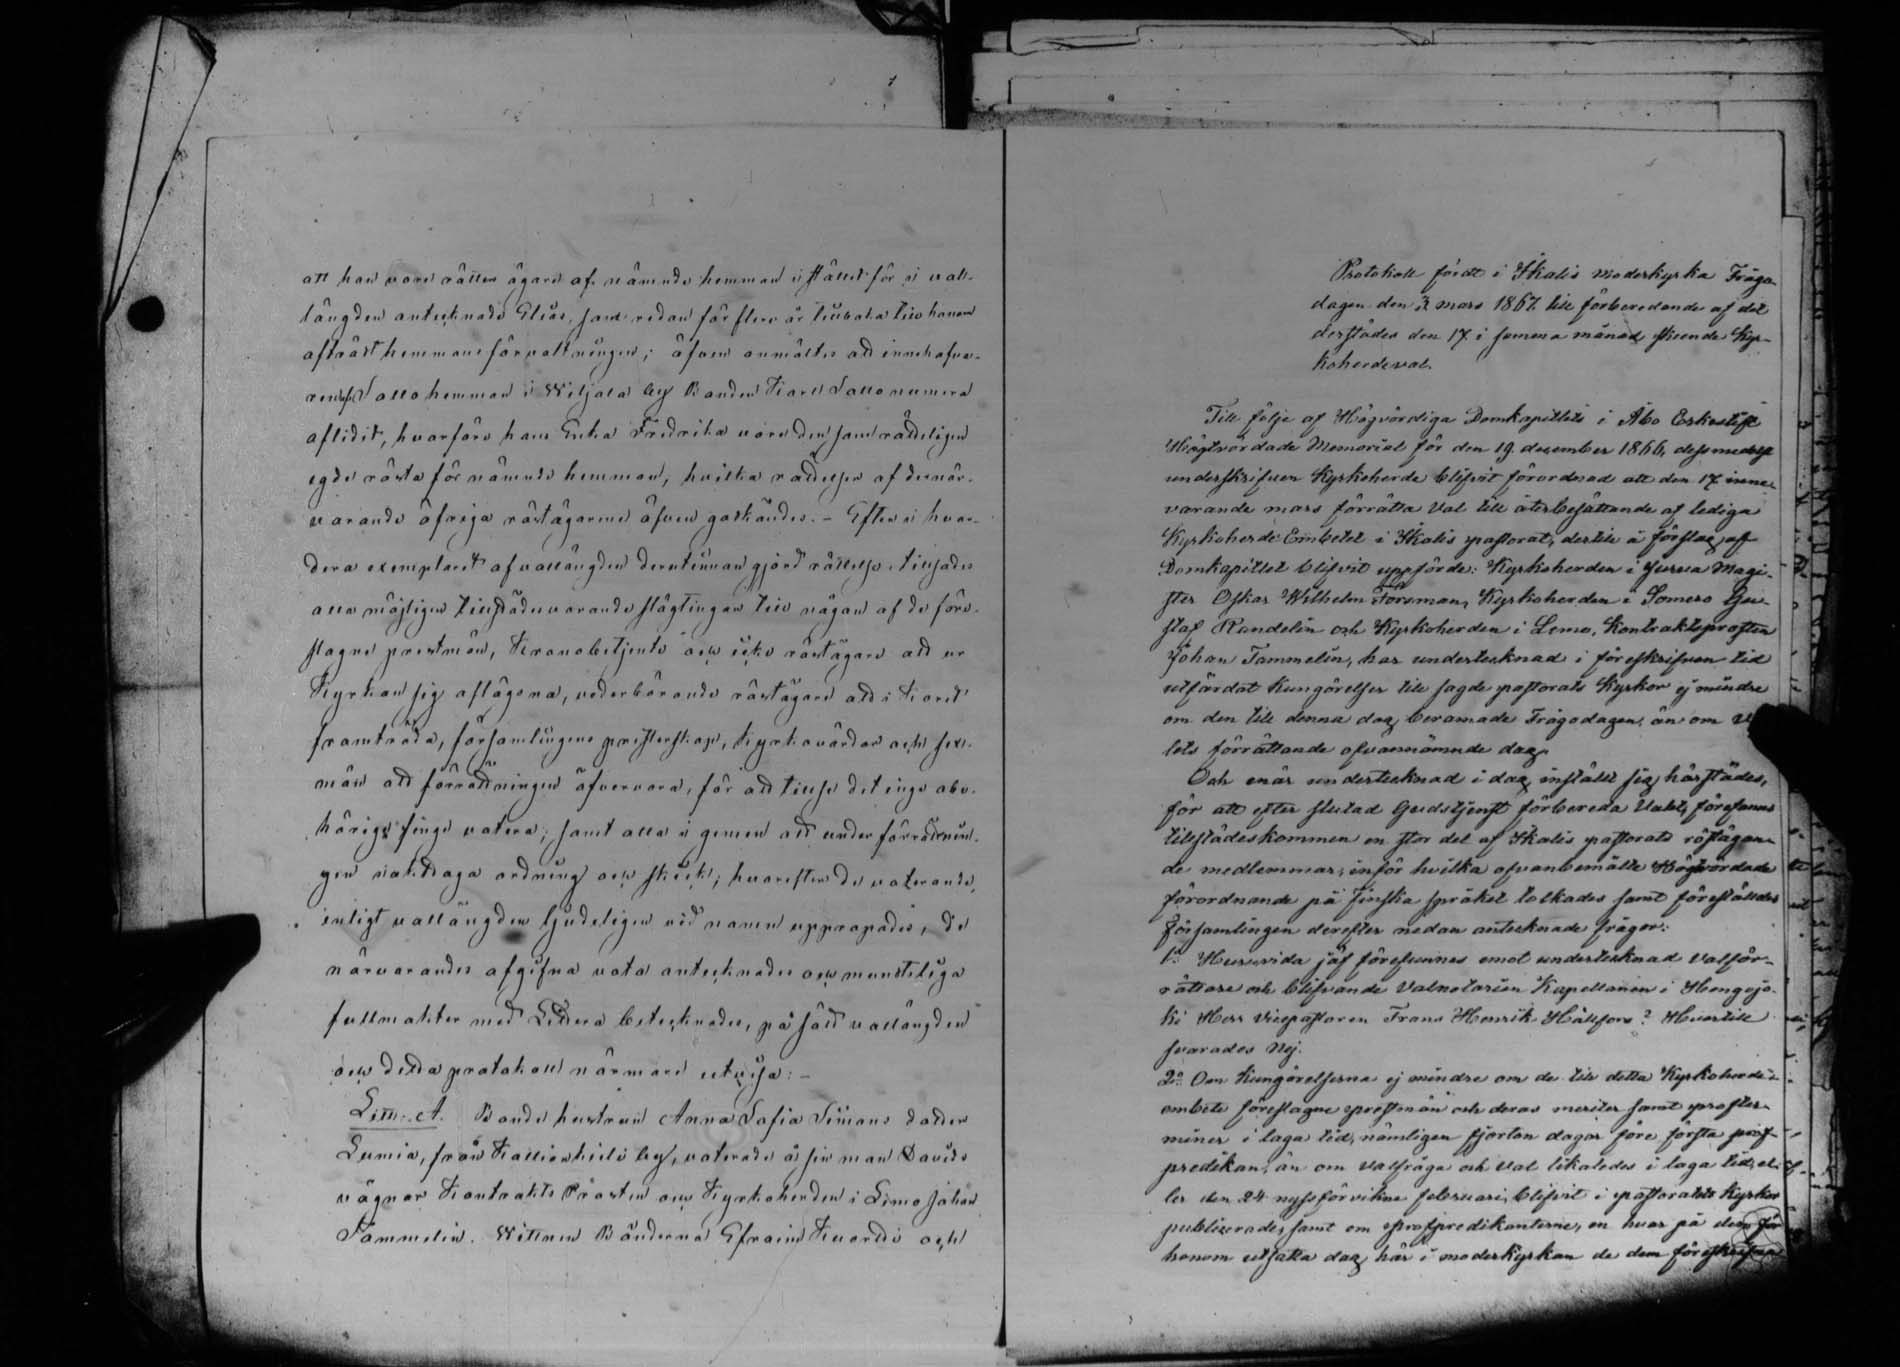 att han vore rätter ägare af nämnde hemman i stället för i vall-
längden antecknade Elias, som redan för flere år tillbaka till honom
afträdt hemmansförvaltningen; äfven anmältes att innehafva-
ren af Sallo hemman i Wiljala by Bonden Karl Sallo numera
aflidit, hvarföre hans Enka Fredrika vore den som rätteligen
egde rösta för nämnde hemman, hvilka rättelser af dernär-
varande öfriga röstägarne äfven godkändes. - Efter i hvar-
dera exemplaret af vallängden derutinnan gjord rättelse tillsades
alla möjligen tillstädesvarande slägtingar till någon af de före-
slagne prestmän, Kronobetjente och icke röstägare att ur
Kyrkan sig aflägsna, vederbörande röstägare att i Koret
framträda, församlingens presterskap, Kyrkovärdar och sex-
män att förrättningen öfvervara, för att tillse det inge obe-
hörige finge votera; samt alla i gemen att under förrättnin-
gen iakttaga ordning och skick; hvarefter de voterande,
enligt vallängden ljudeligen vid namn uppropades, de
närvarandes afgifna vota antecknades och muntliga
fullmakter med Littera betecknades, på sätt vallängden
och detta protokoll närmare utvisa: -
Litt: A. Bonde hustrun Anna Sofia Simons dotter
Lumia, från Kallionkieli by, voterade å sin man Davids
vägnar Kontrakts Prosten och Kyrkoherden i Lemo Johan
Tammelin. Wittnen Bönderna Efraim och
Protokoll fördt i Ikalis moderkyrka Fråga-
dagen den 3 mars 1867 till förberedande af det
derstädes den 17 i samma månad skeende Kyr-
koherdeval.
Till följe af Högvördiga Domkapitlets i Åbo Erkestift
Högtvördade Memorial för den 19 december 1866, dessmedelst
underskrifven Kyrkoherde blifvit förordnad att den 17 inne-
varande mars förrätta val till återbesättande af lediga
Kyrkoherde Embetet i Ikalis pastorat, dertill å förslag af
Domkapitlet blifvit uppförde: Kyrkoherden i Jurva Magi-
ster Oskar Wilhelm Forsman, Kyrkoherden i Somero Gu-
staf Randelin och Kyrkoherden i Lemo, Kontraktsprosten
Johan Tammelin, har undertecknad i föreskrifven tid
utfärdat Kungörelser till sagde pastorats Kyrkor ej mindre
om den till denna dag beramade Frågodagen, än om va-
lets förrättande ofvannämnde dag.
Och enär undertecknad i dag inställt sig härstädes,
för att efter slutad Gudstjenst förbereda valet, förefanns
tillstädeskommen en stor del af Ikalis pastorats röstägan-
de medlemmar, inför hvilka ofvanbemälte Högvördade
förordnande på finska språket tolkades samt föreställdes
församlingen derefter nedan antecknade frågor:
1:o Huruvida jäf förefunnes emot undertecknad Valför-
rättare och blifvande Valnotarien Kapellanen i Hongojo-
ki Herr Vicepastoren Frans Henrik Hällfors? Hvartill
svarades Nej.
2:o Om Kungörelserna ej mindre om de till detta Kyrkoherde-
embete föreslagne prestmän och deras meriter samt profter-
miner i laga tid, nämligen fjorton dagar före första prof-
predikan, än om valfråga och val likaledes i laga tid, el-
ler den 24 nyssförvikne februari, blifvit i pastoratets Kyrkor
publicerade, samt om Profpredikanterne, en hvar på den för
honom utsatta dag, här i moderkyrkan de dem föreskrifna